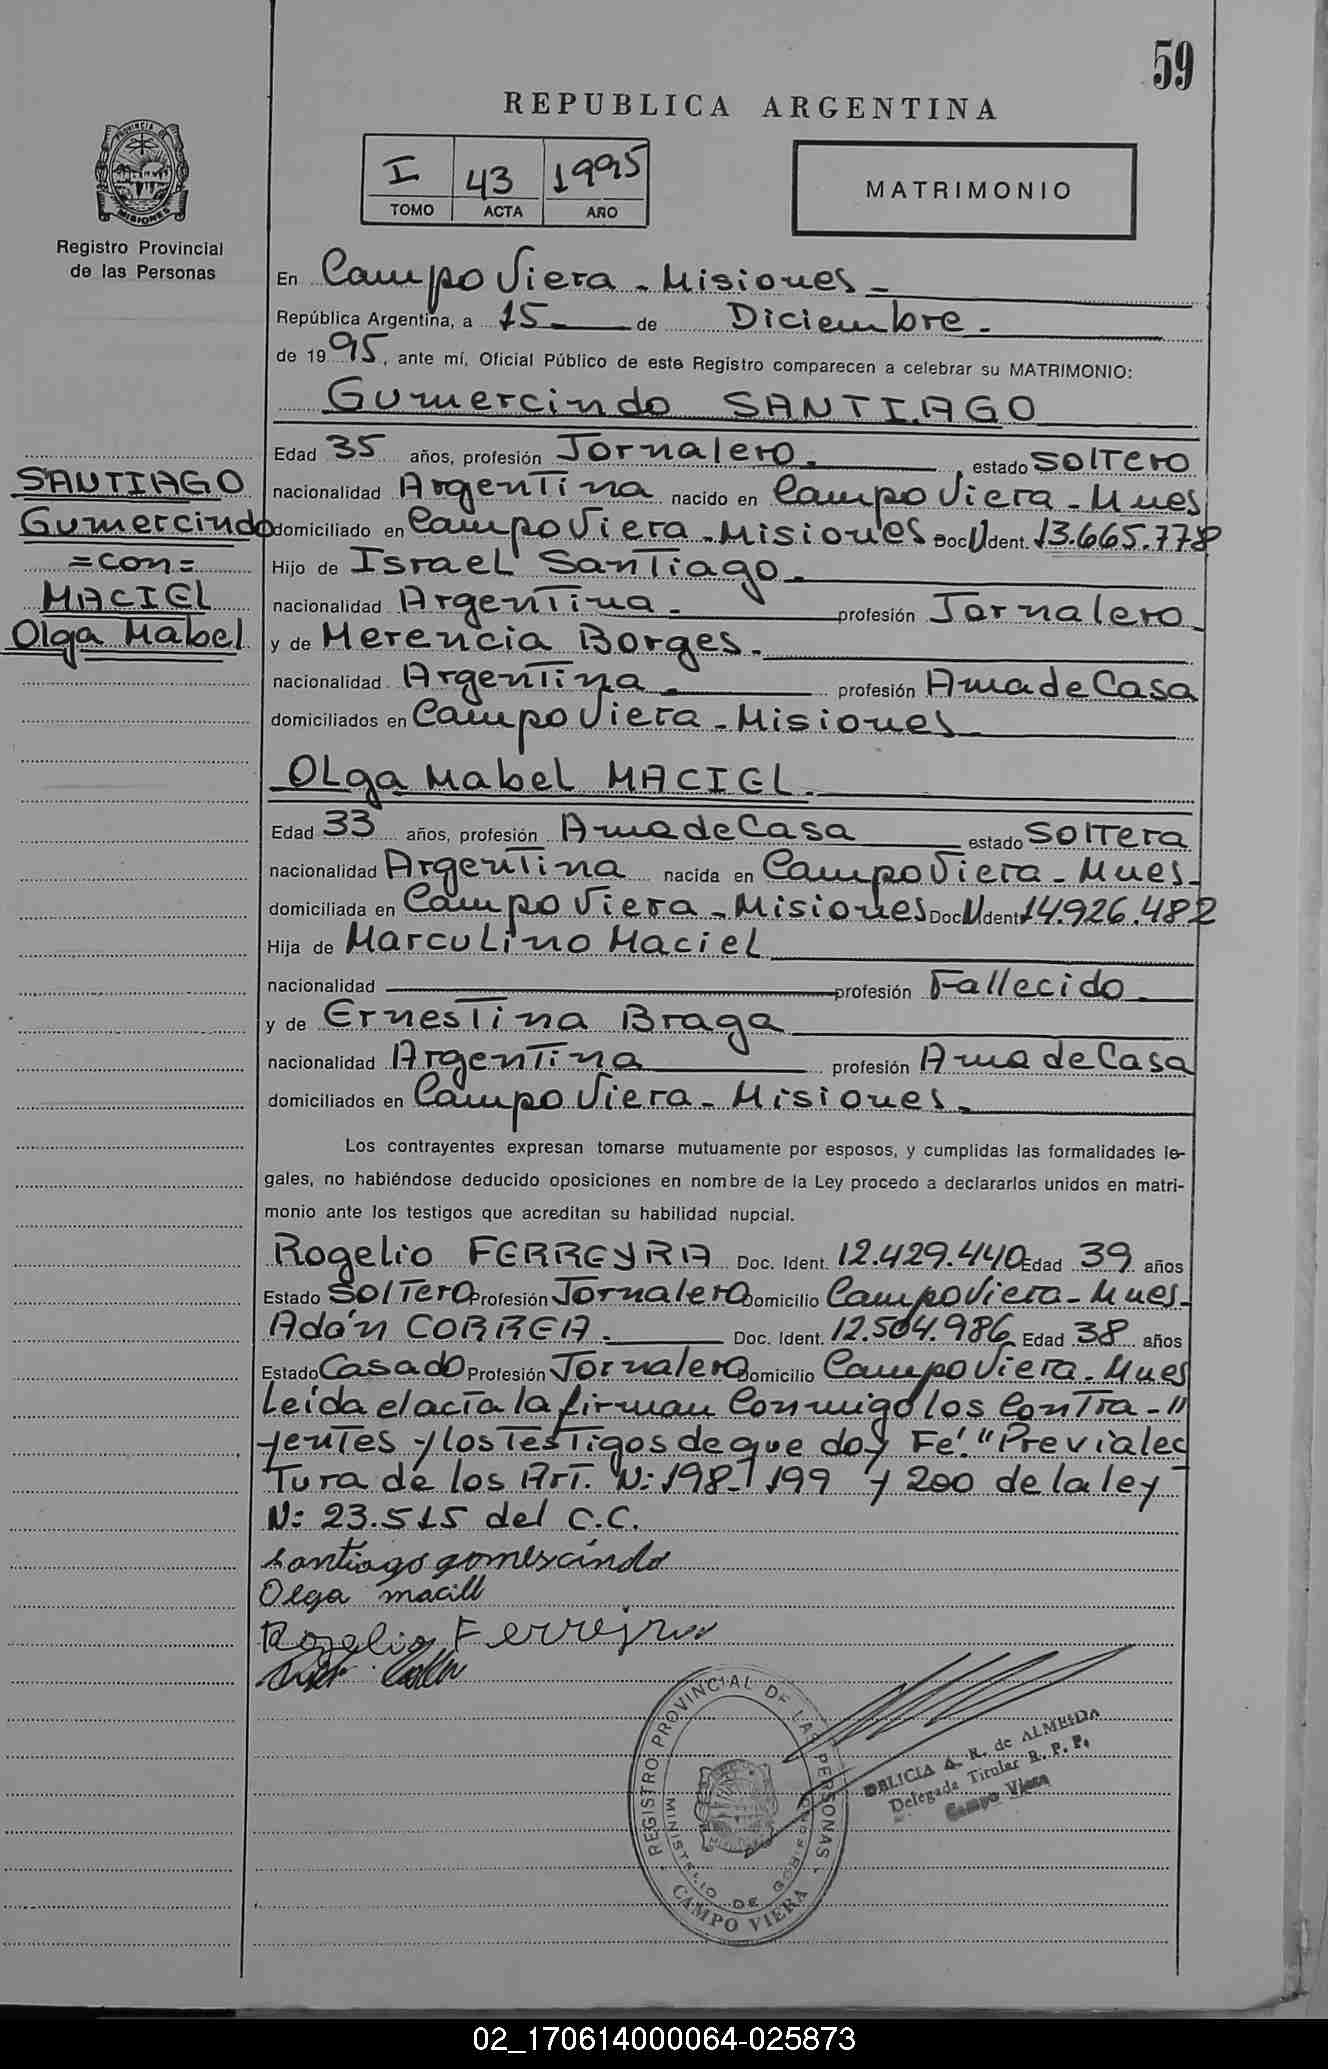 59
REPUBLICA ARGENTINA
I 43 1995
TOMO ACTA AÑO
MATRIMONIO
PROVINCIA DE MISIONES
Registro Provincial
de las Personas
SANTIAGO
Gumercindo
=con=
MACIEL
Olga Mabel
En Campo Viera - Misiones -
República Argentina, a 15 de Diciembre.
de 1995, ante mí, Oficial Público de este Registro comparecen a celebrar su MATRIMONIO:
Gumercindo SANTIAGO
Edad 35 años, profesión Jornalero. estado SOLTERO
nacionalidad Argentina nacido en Campo Viera - Mnes
domiciliado en Campo Viera - Misiones Doc U Ident. 13.665.778
Hijo de Israel Santiago.
nacionalidad Argentina. profesión Jornalero
y de Merencia Borges.
nacionalidad Argentina profesión Ama de Casa
domiciliados en Campo Viera - Misiones
OLga Mabel MACIEL.
Edad 33 años, profesión Ama de Casa estado Soltera
nacionalidad Argentina nacida en Campo Viera - Mnes-
domiciliada en Campo Viera - Misiones Doc U Ident 14.926.482
Hija de Marculino Maciel
nacionalidad profesión Fallecido.
y de Ernestina Braga
nacionalidad Argentina profesión Ama de Casa
domiciliados en Campo Viera - Misiones.
Los contrayentes expresan tomarse mutuamente por esposos, y cumplidas las formalidades le-
gales, no habiéndose deducido oposiciones en nombre de la Ley procedo a declararlos unidos en matri-
monio ante los testigos que acreditan su habilidad nupcial.
Rogelio FERREYRA Doc. Ident. 12.429.440 Edad 39 años
Estado Soltero Profesión Jornalero Domicilio Campo Viera - Mnes-
Adán CORREA. Doc. Ident. 12.504.986 Edad 38 años
Estado Casado Profesión Jornalero Domicilio Campo Viera - Mnes
Leída el acta la firman Conmigo los Contra-"
yentes y los Testigos de que doy Fé." Previa lec
Tura de los Art. N: 198-199 y 200 de la ley
N: 23.515 del C.C.
Santiago gomercindo
Olga macill
Rogelio Ferreyra
REGISTRO PROVINCIAL DE LAS PERSONAS
MINISTERIO DE GOBIERNO
CAMPO VIERA
DELICIA A. R. de ALMEIDA
Delegada Titular R. P. P.
Campo Viera
02_170614000064-025873